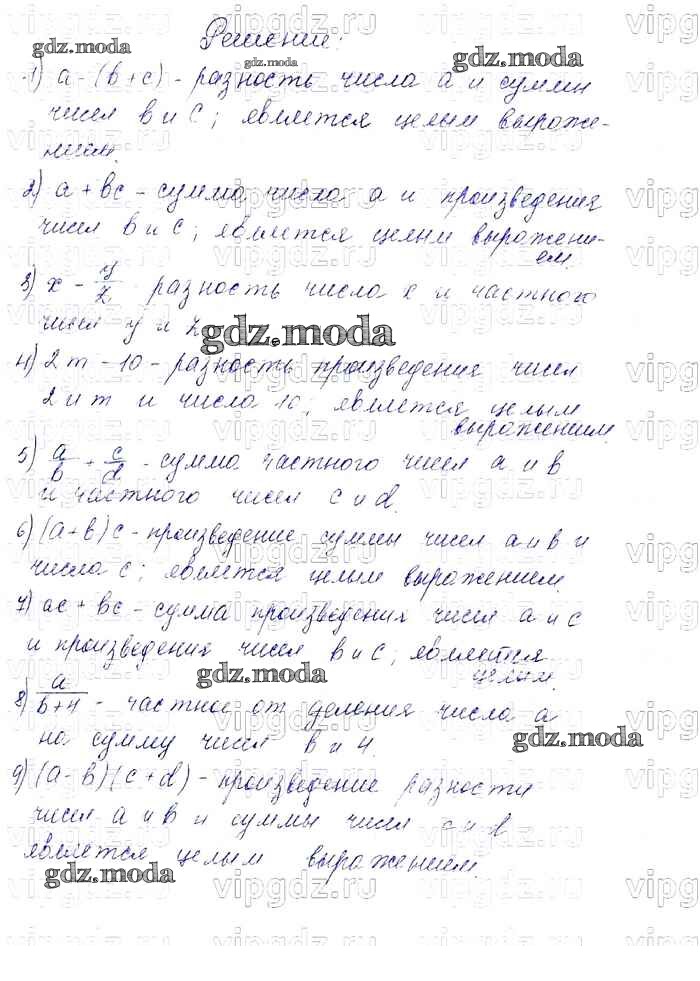 Решение:
1) a - (b + c) - разность числа a и суммы
чисел b и c; является целым выраже-
нием.
2) a + bc - сумма числа a и произведения
чисел b и c; является целым выражени-
ем.
3) x - y/z разность числа x и частного
чисел y и z
4) 2m - 10 - разность произведения чисел
2 и m и числа 10; является целым
выражением.
5) a/b + c/d - сумма частного чисел a и b
и частного чисел c и d.
6) (a + b)c - произведение суммы чисел a и b и
числа c; является целым выражением.
7) ac + bc - сумма произведения чисел a и c
и произведения чисел b и c; является
целым.
8) a/b+4 - частное от деления числа a
на сумму чисел b и 4.
9) (a - b)(c + d) - произведение разности
чисел a и b и суммы чисел c и d
является целым выражением.
gdz.moda
vipgdz.ru